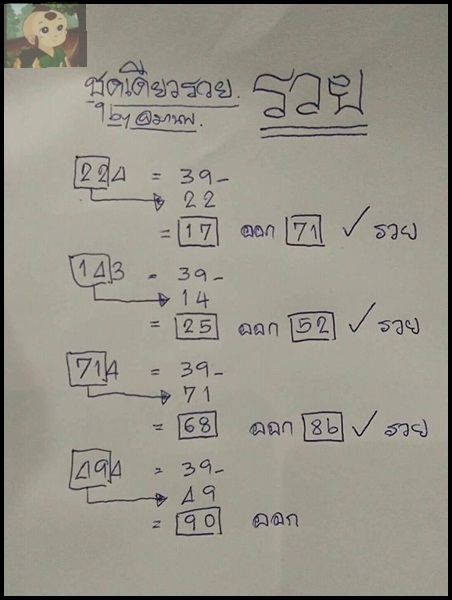 ชุดเดียวรวย. รวย
by อมานพ.
224 = 39-
22
= 17 ออก 71 ✓ รวย
143 = 39-
14
= 25 ออก 52 ✓ รวย
714 = 39-
71
= 68 ออก 86 ✓ รวย
494 = 39-
49
= 90 ออก